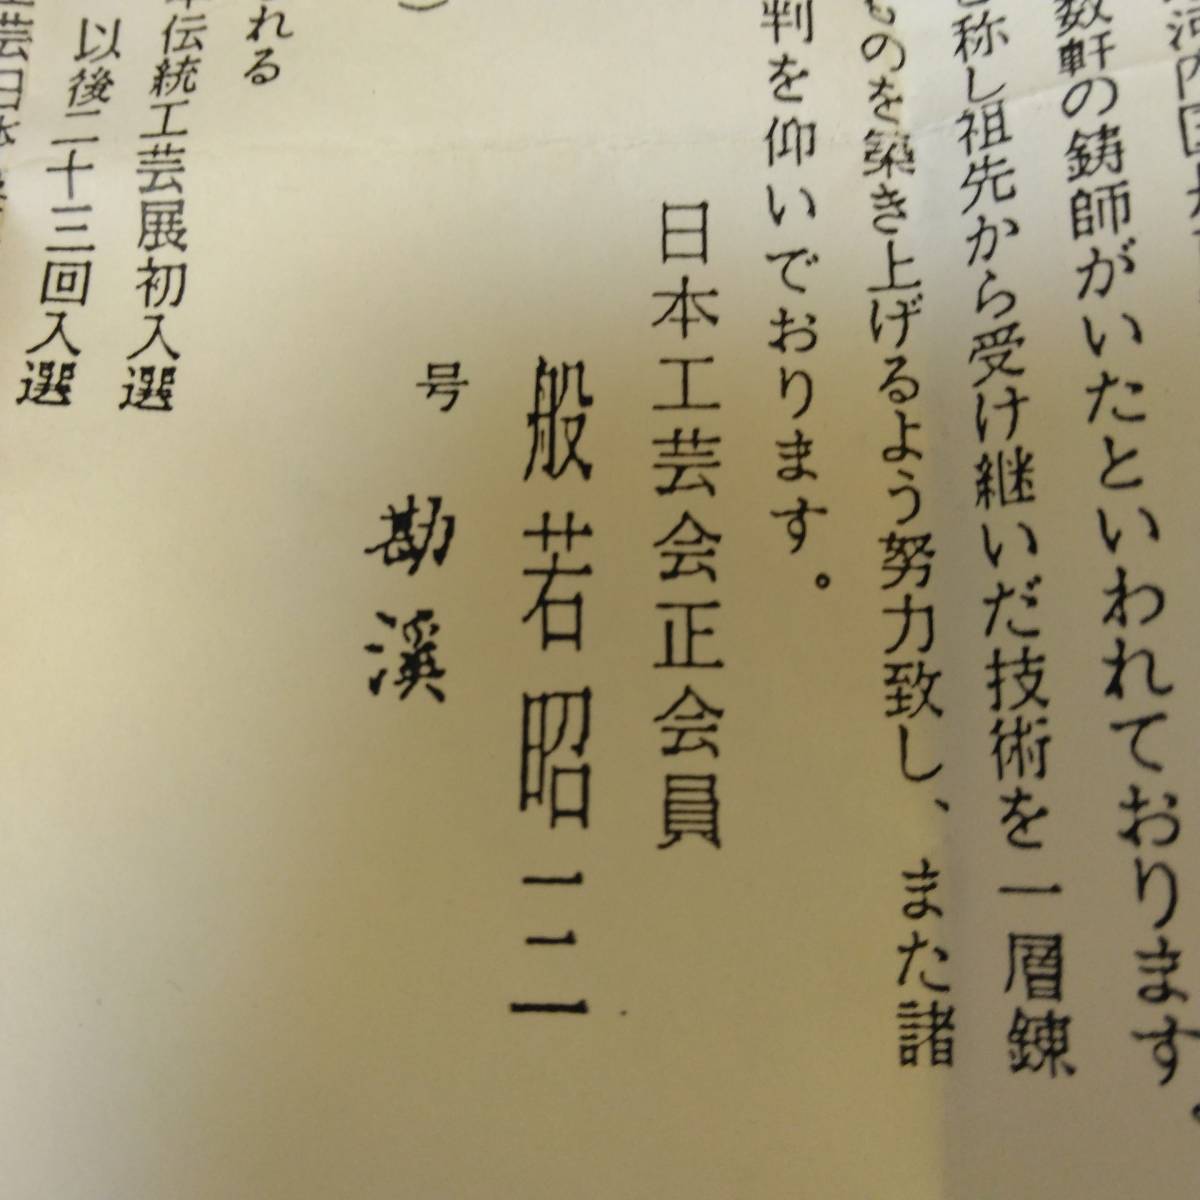 河内国
数軒の鋳師がいたといわれております。
称し祖先から受け継いだ技術を一層錬
ものを築き上げるよう努力致し、また諸
判を仰いでおります。
日本工芸会正会員
般若昭三
号 勘溪
）
れる
伝統工芸展初入選
以後二十三回入選
工芸日本